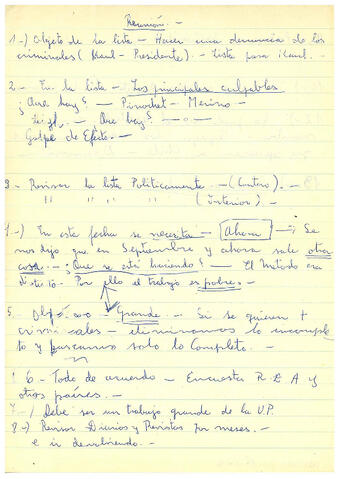 Reunión. -
1-) Objeto de la lista - Hacer una denuncia de los
criminales (Raul - Presidente). - Lista para Raul. -
2- En la lista - Los principales culpables
¿Que hay? - Pinochet - Merino -
Leigh, - Que hay? -
Golpe de Efecto. -
3- Revisar la lista Politicamente. - (Centro). -
" " " " - (Interior). -
4-) En esta fecha se necesita - Ahora - Se
nos dijo que en Septiembre y ahora sale otra
cosa. - ¿Que se está haciendo? - El Metodo era
distinto. Por ello el trabajo es pobre. -
5. Grande. - Si se quieren +
criminales - eliminamos lo incomple
to y buscamos solo lo Completo. -
6- Todo de acuerdo - Encuesta R.D.A y
otros países. -
7-) Debe ser un trabajo grande de la U.P.
8-) Revisar Diarios y Revistas por meses. -
e ir -